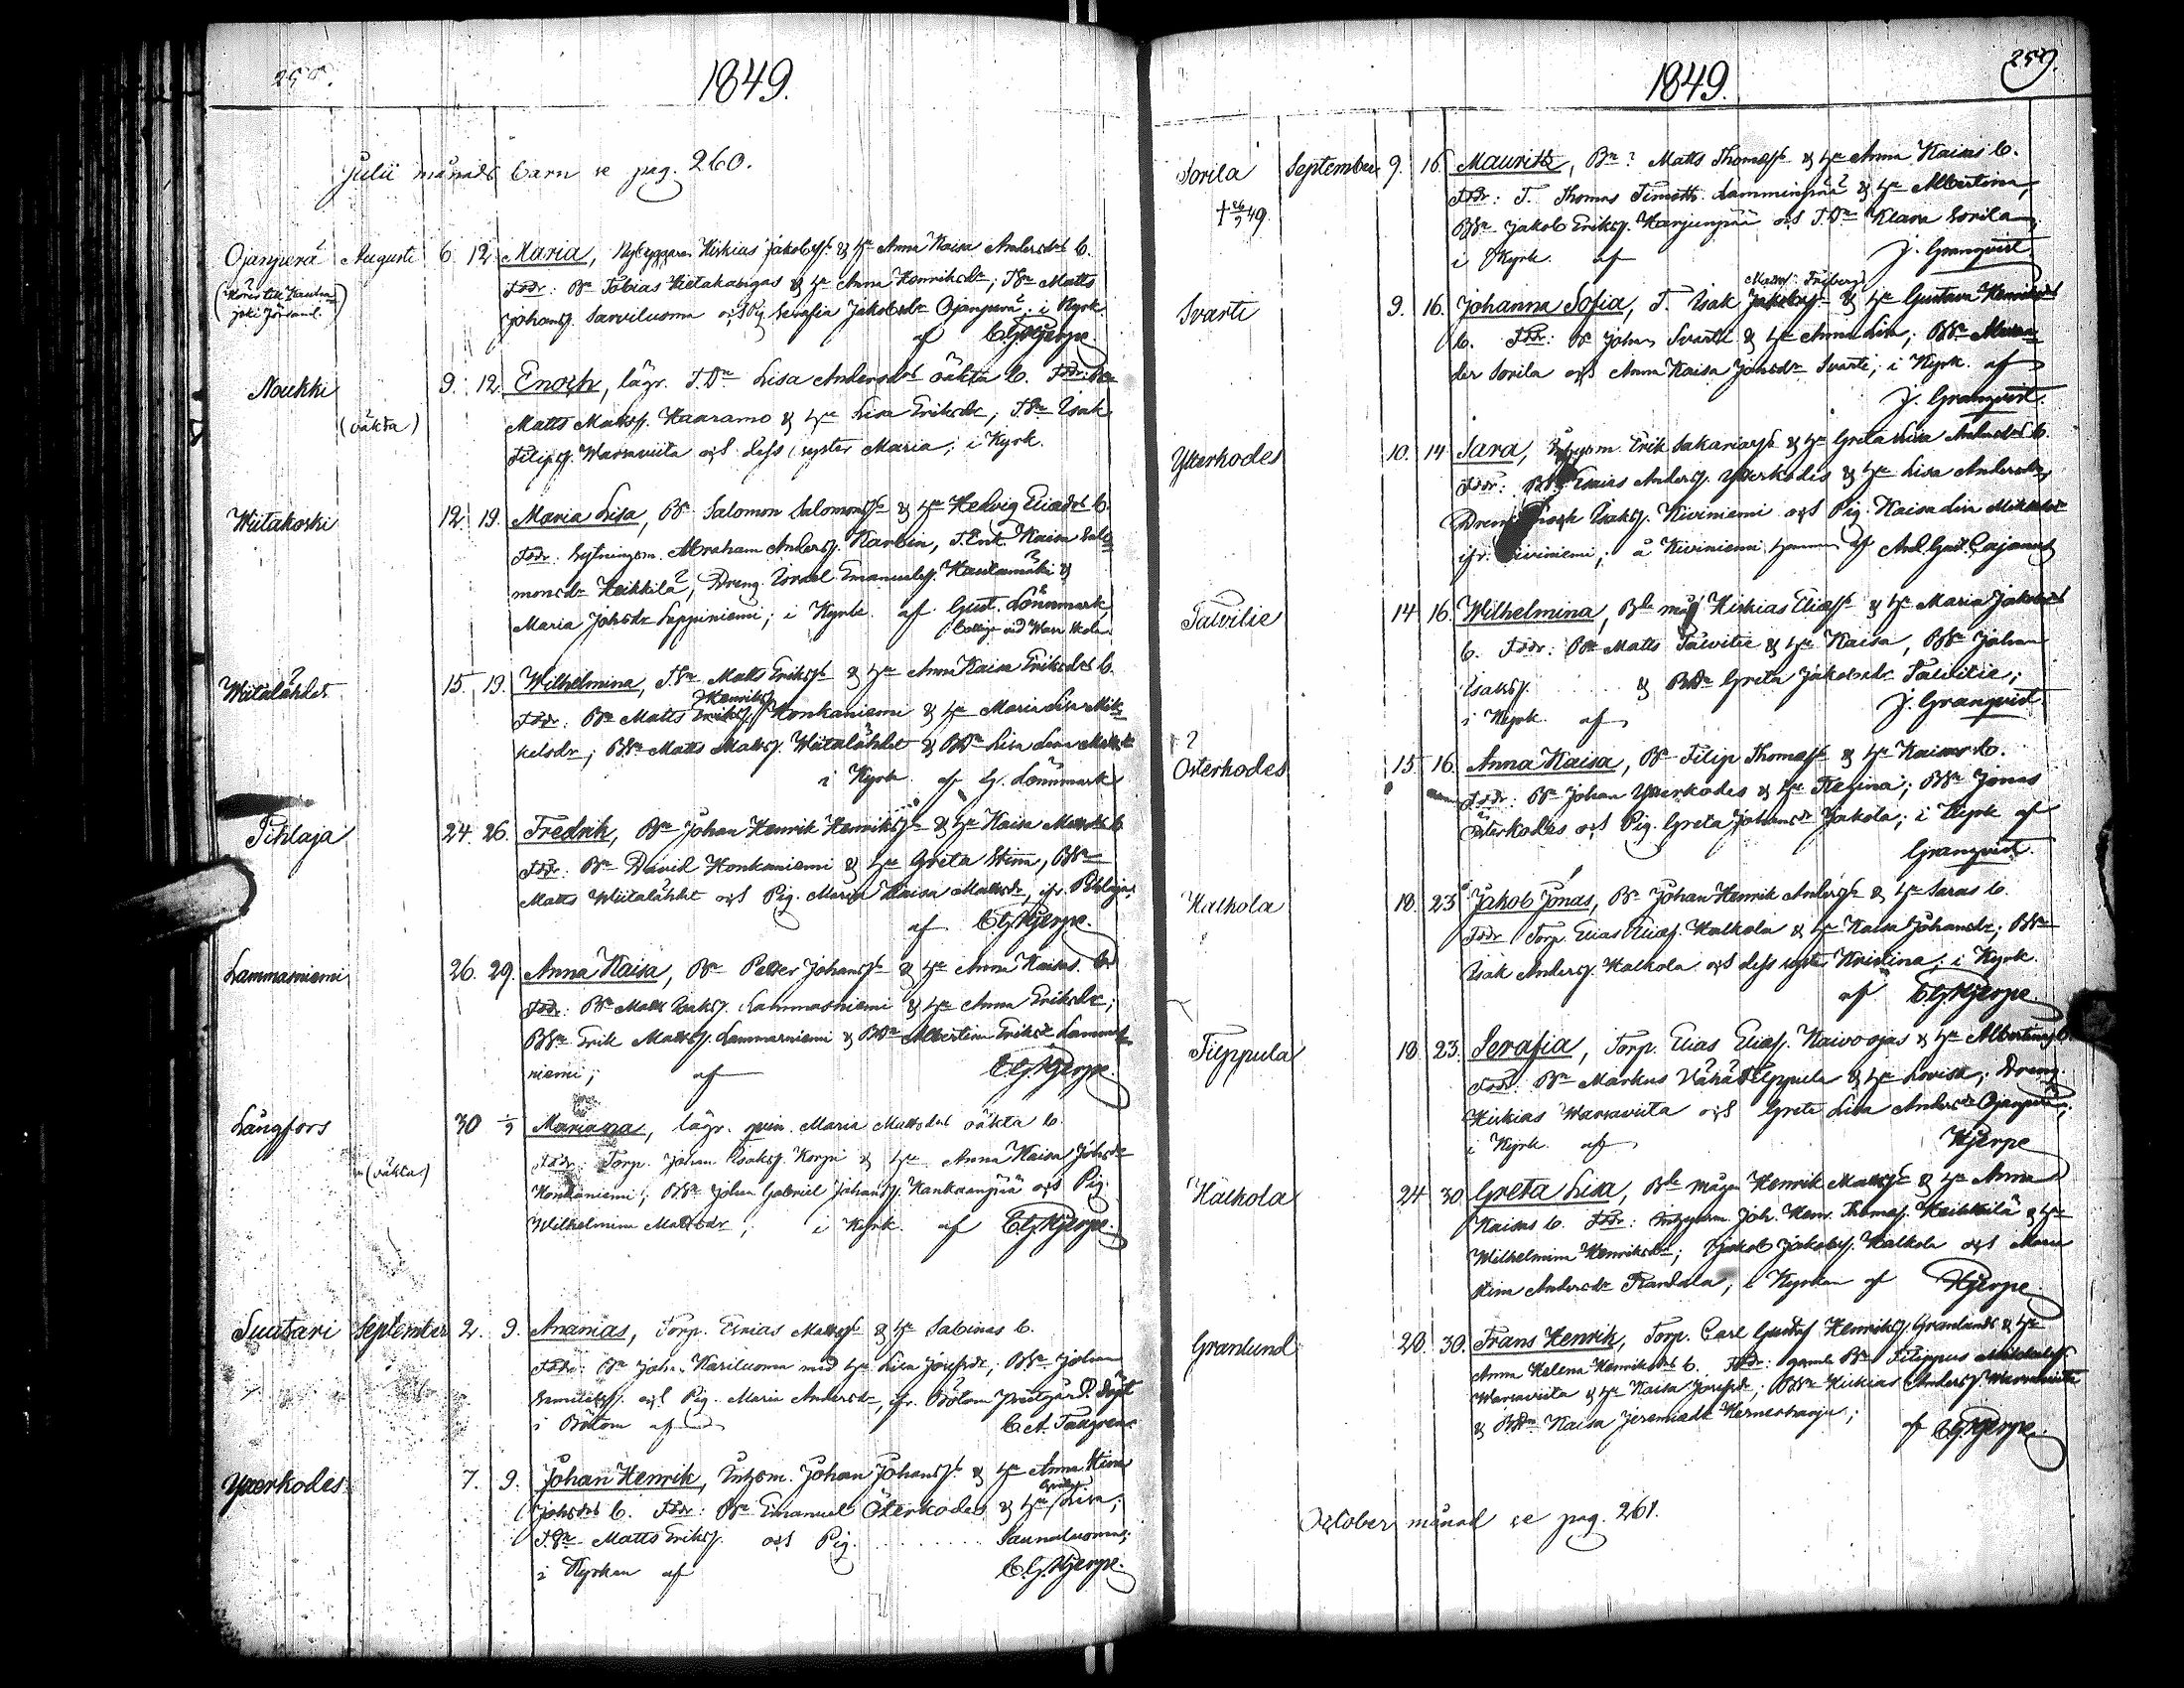 258.
1849.
Julii månads barn se pag. 260.
Ojanperä Augusti 6. 12. Maria, Nybyggaren Hiskias Jakobss. & h. Anna Kaisa Andersdrs b.
Fddr: Bn Tobias Hietakangas & h. Anna Henriksdr; TSn Matts
Johanss. Sarviluoma och Pig. Serafia Jakobsdr Ojanperä; i Kyrk.
af C. G. Hjerpe.
Noukki 9. 12. Enoch, lägr. T.Dr Lisa Andersdrs oäkta b. Fddr: Bn
(oäkta)
Matts Matss. Haaramo & h. Lisa Eriksdr, TSn Isak
Filips. Warsaviita och dess syster Maria; i Kyrk.
Wiitakoski 12. 19. Maria Lisa, Bn Salomon Salomonss. & h. Hedvig Eliædrs b.
Fddr: Sytningsm. Abraham Anderss. Karbin, T.Enk. Kaisa Salo-
monsdr Heikkilä, Dreng. Israel Emanuelss. Hautamäki &
Maria Johsdr Luppiniemi; i Kyrk. af Gust. Lönnmark,
Collega vid Wasa Skola.
Wiitalähdet 15. 19. Wilhelmina, T.Sn Matts Erikss. & h. Anna Kaisa Eriksdrs b.
Henrikss.
Fddr: Bn Matts Erikss. Honkaniemi & h. Maria Lisa Mik-
kelsdr; BSn Matts Matss. Wiitalähdet & BDr Lisa Lena Mattsdr
i Kyrk. af G. Lönnmark
Pihlaja 24. 26. Fredrik, Bn Johan Henrik Henrikss. & h. Kaisa Mattsdrs b.
Fddr: Bn David Honkaniemi & h. Greta Stina, BSn
Matts Wiitalähdet och Pig. Maria Kaisa Mattsdr, ifr. Pihlaja,
af C. G. Hjerpe.
Lammasniemi 26. 29. Anna Kaisa, Bn Petter Johanss. & h. Anna Kaisas b.
Fddr: Bn Matts Isakss. Lammasniemi & h. Anna Eriksdr;
BSn Erik Matss. Lammasniemi & BDr Albertina Eriksdr Lammas-
niemi; af C. G. Hjerpe.
Långfors 30 Mariana, lägr. qvin. Maria Mattsdrs oäkta b.
(oäkta)
Fddr: Torp. Johan Isakss. Korpi & h. Anna Kaisa Johsdr
Honkaniemi; BSn Johan Gabriel Johanss. Kankaanpää och Pig.
Wilhelmina Mattsdr; i Kyrk. af C. G. Hjerpe.
Suutari September 2. 9. Ananias, Torp. Esaias Matss. & h. Sabinas b.
Fddr: Bn Joh. Kariluoma med h. Lisa Josefsdr; BSn Johan
och Pig. Maria Andersdr, ifr. Bötom
i Bötom af
Ytterkodes 7. 9. Johan Henrik, Inhysm. Johan Johanss. & h. Anna Stina
Johsdrs b. Fddr: Bn Emanuel Österkodes & h. Lovisa;
T.Sn Matts Erikss. och Pig. ........ Saunaluoma;
i Kyrkan af C. G. Hjerpe.
259.
1849.
Sorila September 9. 16. Mauritz, Bn? Matts Thomass. & h. Anna Kaisas b.
Fddr: T. Thomas Timoth. Lamminpää & h. Albertina,
BSn Jakob Erikss. Harjunpää och T.Dr Klara Sorila,
i Kyrk. af J. Granqvist.
Svarti 9. 16. Johanna Sofia, T. Isak & h. Gustava Henriksdrs
b. Fddr: Bn Johan Svarti & h. Anna Lisa; BSn Alexan-
der Sorila och Anna Kaisa Johsdr Svarti; i Kyrk. af
J. Granqvist.
Ytterkodes 10. 14 Sara, Inhysm. Erik Sakariass. & h. Greta Lisa Andersdrs b.
Fddr: Esaias Anderss. Ytterkodes & h. Lisa Andersdr,
Dreng Isakss. Kiviniemi och Pig. Kaisa Lisa Mikkelsdr
ifr. Kiviniemi; å Kiviniemi hemman af And. Gust. Cajanus
Talvitie 14 16. Wilhelmina, Bde måg Hiskias Eliæss. & h. Maria Jakobsdrs
b. Fddr: Bn Matts Talvitie & h. Kaisa, BSn Johan
Isakss. ..... & BDr Greta Jakobsdr Talvitie;
i Kyrk. af J. Granqvist.
Österkodes 15 16. Anna Kaisa, Bn Filip Thomass. & h. Kaisas b.
Fddr: Bn Johan Ytterkodes & h. Regina; BSn Jonas
Österkodes och Pig. Greta Johansdr Jakola; i Kyrk. af
Granqvist.
Halkola 18. 23 Jakob Jonas, Bn Johan Henrik Anderss. & h. Saras b.
Fddr Torp. Elias Eliæs. Halkola & h. Kaisa Johansdr; BSn
Isak Anderss. Halkola och dess syster Kristina; i Kyrk.
af C. G. Hjerpe.
Filppula 18. 23. Serafia, Torp. Elias Eliæs. Kaivo-ojas & h. Albertinas b.
Fddr: Bn Markus Vähä Filppula & h. Lovisa; Dreng.
Hiskias Warsaviita och Greta Lisa Andersdr Ojanperä;
i Kyrk. af Hjerpe
Halkola 24 30 Greta Lisa, Bde mågen Henrik Matss. & h. Anna
Kaisas b. Fddr: Inhysm. Joh. Henr. Thomass. Heikkilä & h.
Wilhelmina Henriksdr; Jakob Jakobss. Halkola och Maria
Stina Andersdr Randala, i Kyrkan af Hjerpe
Granlund 28. 30. Frans Henrik, Torp. Carl Gustaf Henrikss. Granlunds & h.
Anna Helena Henriksdrs b. Fddr: gamle Bn Filippus Mikkelss.
Warsaviita & h. Kaisa Josefsdr; BSn Hiskias Anderss. Warsaviita
& BDr Kaisa Jeremiædr Herneskanju; af C. G. Hjerpe.
October månad se pag. 261.